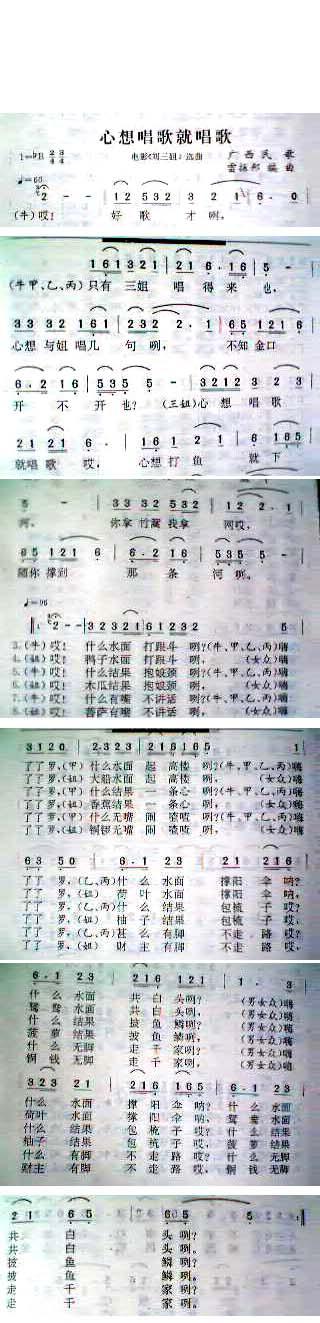 心想唱歌就唱歌
1=♭B 2/4 3/4
电影《刘三姐》选曲
广西民歌
雷振邦编曲
♩=66
2 - - | 12 532 3 2 1 6. 0
(牛)哎! 好歌 才咧。
161 321 | 21 6. 16 | 5 -
(牛甲、乙、丙)只有 三姐 唱得来也,
33 32 161 | 232 2. 1 | 65 121 6
心想与姐唱几 句咧, 不知金口
6. 2 16 | 535 5 - | 3212 3 23
开不开也? (三姐)心想唱歌
21 21 6. | 161 2 1 | 6 165
就唱歌哎, 心想打鱼 就下
5 - - | 33 32 532 | 12 2. 1
河。 你拿竹篙我拿 网哎,
65 121 6 | 6. 2 16 | 535 5 -
随你撑到 那条 河咧。
♩=96
2 - - | 32 321 61 232 | 5
3.(牛)哎! 什么水面 打跟斗 咧?(牛、甲、乙、丙)嗨
4.(姐)哎! 鸭子水面 打跟斗 咧, (女众)嗨
5.(牛)哎! 什么结果 抱娘颈 咧?(牛、甲、乙、丙)嗨
6.(姐)哎! 木瓜结果 抱娘颈 咧, (女众)嗨
7.(牛)哎! 什么有嘴 不讲话 咧?(牛、甲、乙、丙)嗨
8.(姐)哎! 菩萨有嘴 不讲话 咧, (女众)嗨
3120 | 2.323 | 216165 | 1
了了罗,(甲)什么水面 起高楼 咧?(牛、甲、乙、丙)嗨
了了罗,(姐)大船水面 起高楼 咧, (女众)嗨
了了罗,(甲)什么结果 一条心 咧?(牛、甲、乙、丙)嗨
了了罗,(姐)香蕉结果 一条心 咧, (女众)嗨
了了罗,(甲)什么无嘴 闹喳喳 咧?(牛、甲、乙、丙)嗨
了了罗,(姐)铜锣无嘴 闹喳喳 咧, (女众)嗨
63 50 | 6. 1 23 | 21 216
了了罗,(乙、丙)什么水面 撑阳伞哨?
了了罗,(姐)荷叶水面 撑阳伞哨,
了了罗,(乙、丙)什么结果 包梳子哎?
了了罗,(姐)柚子结果 包梳子哎,
了了罗,(乙、丙)甚么有脚 不走路哎?
了了罗,(姐)财主有脚 不走路哎,
6. 1 23 | 216 121 | 1. 3
什么水面 共白头咧? (男女众)嗨
鸳鸯水面 共白头咧, (男女众)嗨
什么结果 披鱼鳞咧? (男女众)嗨
菠萝结果 披鱼鳞咧, (男女众)嗨
什么无脚 走千家咧? (男女众)嗨
铜钱无脚 走千家咧, (男女众)嗨
323 21 | 216 165 | 6. 1 23
什么水面 撑阳伞哨? 什么水面
荷叶水面 撑阳伞哨, 鸳鸯水面
什么结果 包梳子哎? 什么结果
柚子结果 包梳子哎, 菠萝结果
什么有脚 不走路哎? 什么无脚
财主有脚 不走路哎, 铜钱无脚
21 65 | 605 5
共白头咧?
共白头咧。
披鱼鳞咧?
披鱼鳞咧。
走千家咧?
走千家咧。